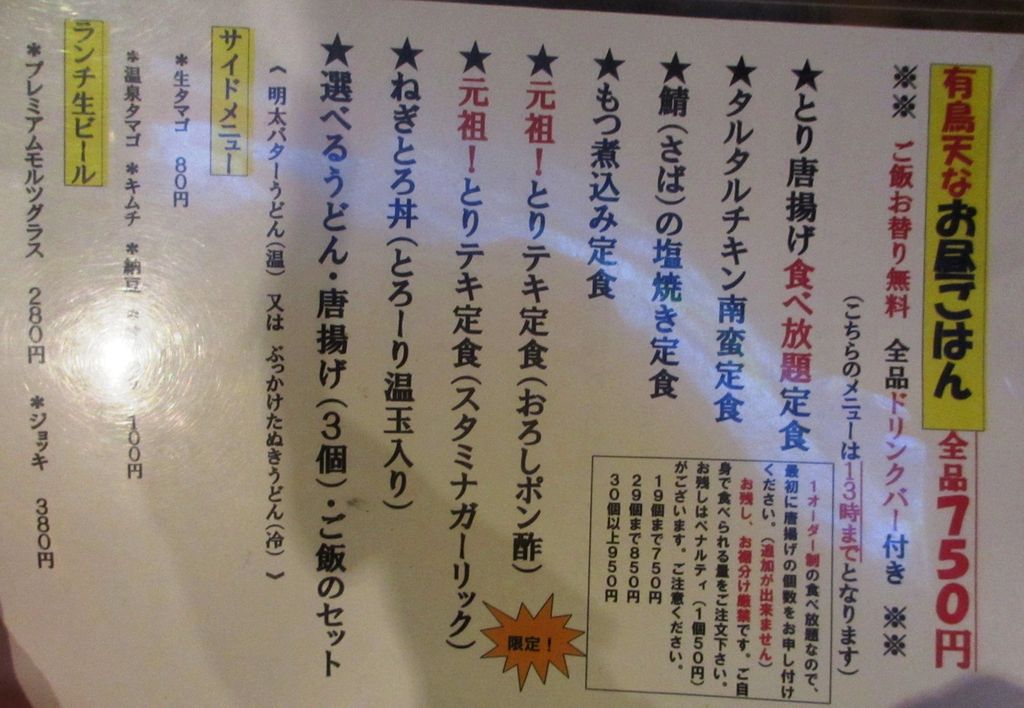 有鳥天なお昼ごはん 全品750円
※※ ご飯お替り無料 全品ドリンクバー付き ※※
(こちらのメニューは13時までとなります)
★とり唐揚げ食べ放題定食
1オーダー制の食べ放題なので、
最初に唐揚げの個数をお申し付け
ください。(追加が出来ません)
お残し、お裾分け厳禁です。ご自
身で食べられる量をご注文下さい。
お残しはペナルティ(1個50円)
がございます。ご注意ください。
19個まで750円
29個まで850円
30個以上950円
★タルタルチキン南蛮定食
★鯖(さば)の塩焼き定食
★もつ煮込み定食
★元祖!とりテキ定食(おろしポン酢)
★元祖!とりテキ定食(スタミナガーリック)
限定!
★ねぎとろ丼(とろーり温玉入り)
★選べるうどん・唐揚げ(3個)・ご飯のセット
《 明太バターうどん(温) 又は ぶっかけたぬきうどん(冷) 》
サイドメニュー
*生タマゴ 80円
*温泉タマゴ *キムチ *納豆 100円
ランチ生ビール
*プレミアムモルツグラス 280円 *ジョッキ 380円